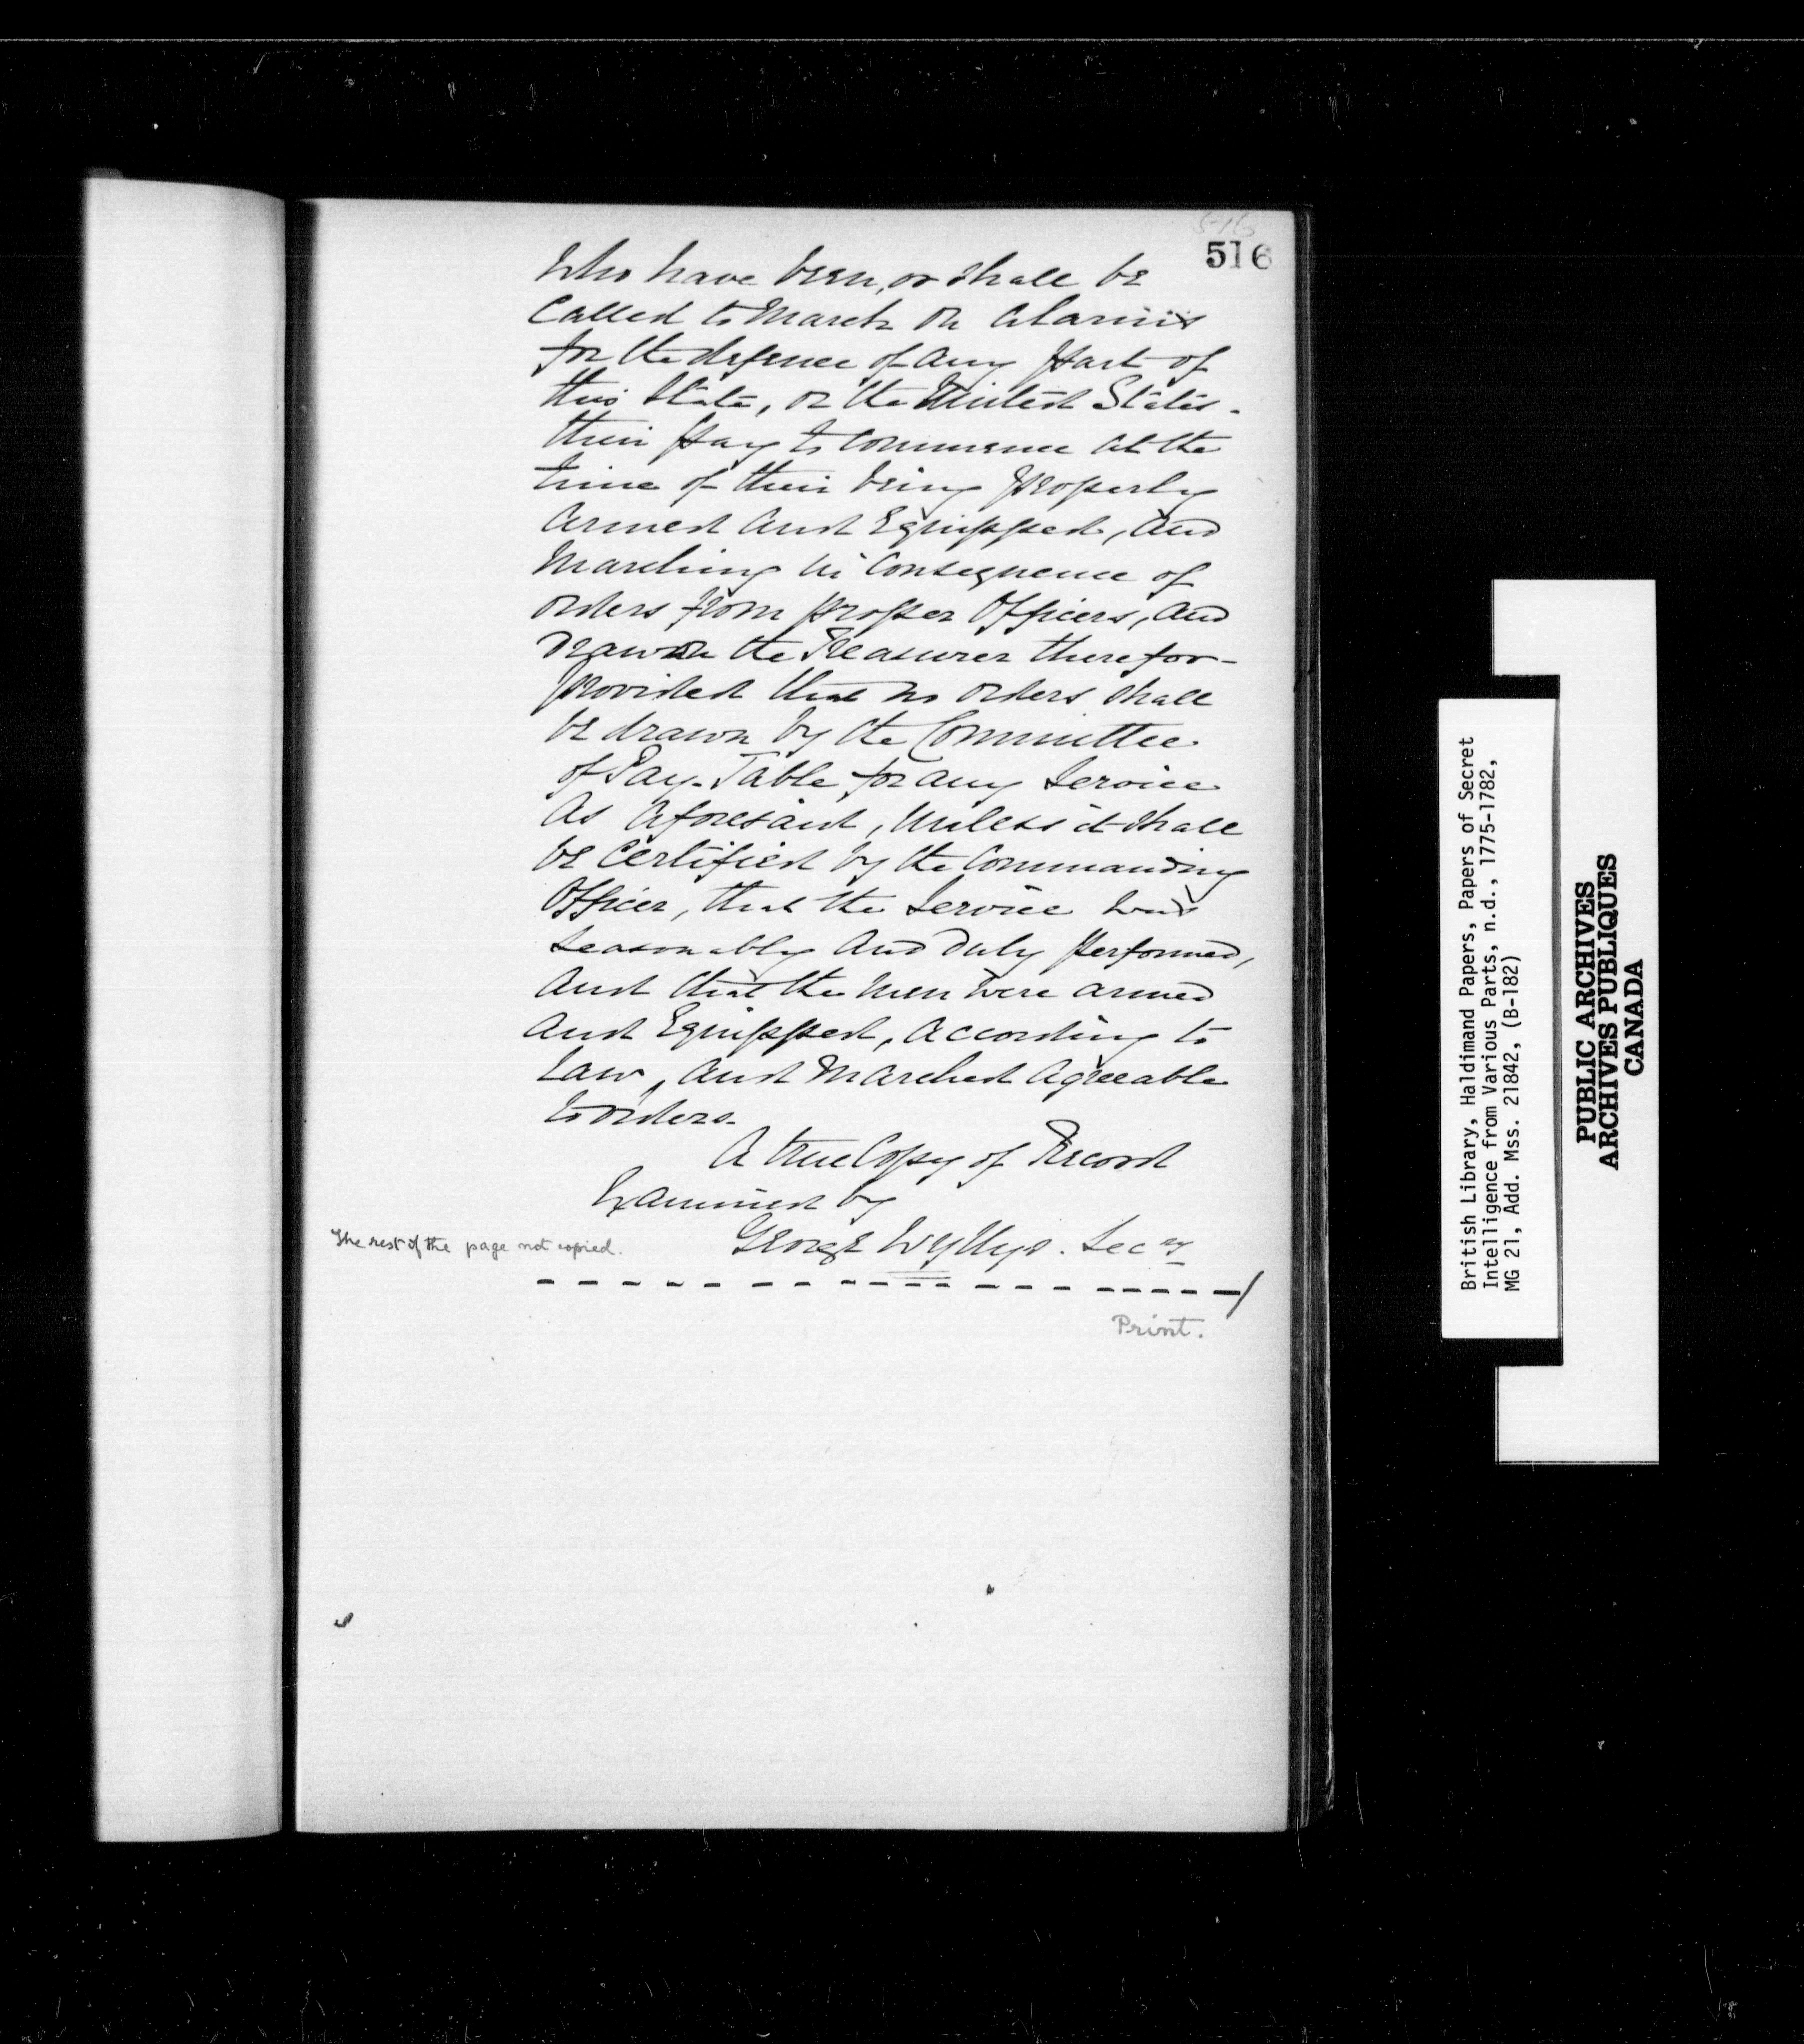 516
516
Who have been, or shall be
Called to March on Alarms
for the defence of any part of
this State, or the United States.
their pay to Commence at the
time of their being properly
Armed and Equipped, and
Marching in Consequence of
orders from proper Officers, and
draw on the Treasurer therefor-
provided that no orders shall
be drawn by the Committee
of Pay-Table for any Service
As Aforesaid, Unless it shall
be Certified by the Commanding
Officer, that the Service was
seasonably and duly performed,
And that the Men were armed
And Equipped, According to
Law, and Marched Agreeable
to orders-
A true Copy of Record
Examined by
George Wyllys. Secry
The rest of the page not copied.
Print.
British Library, Haldimand Papers, Papers of Secret
Intelligence from Various Parts, n.d., 1775-1782,
MG 21, Add. Mss. 21842, (B-182)
PUBLIC ARCHIVES
ARCHIVES PUBLIQUES
CANADA